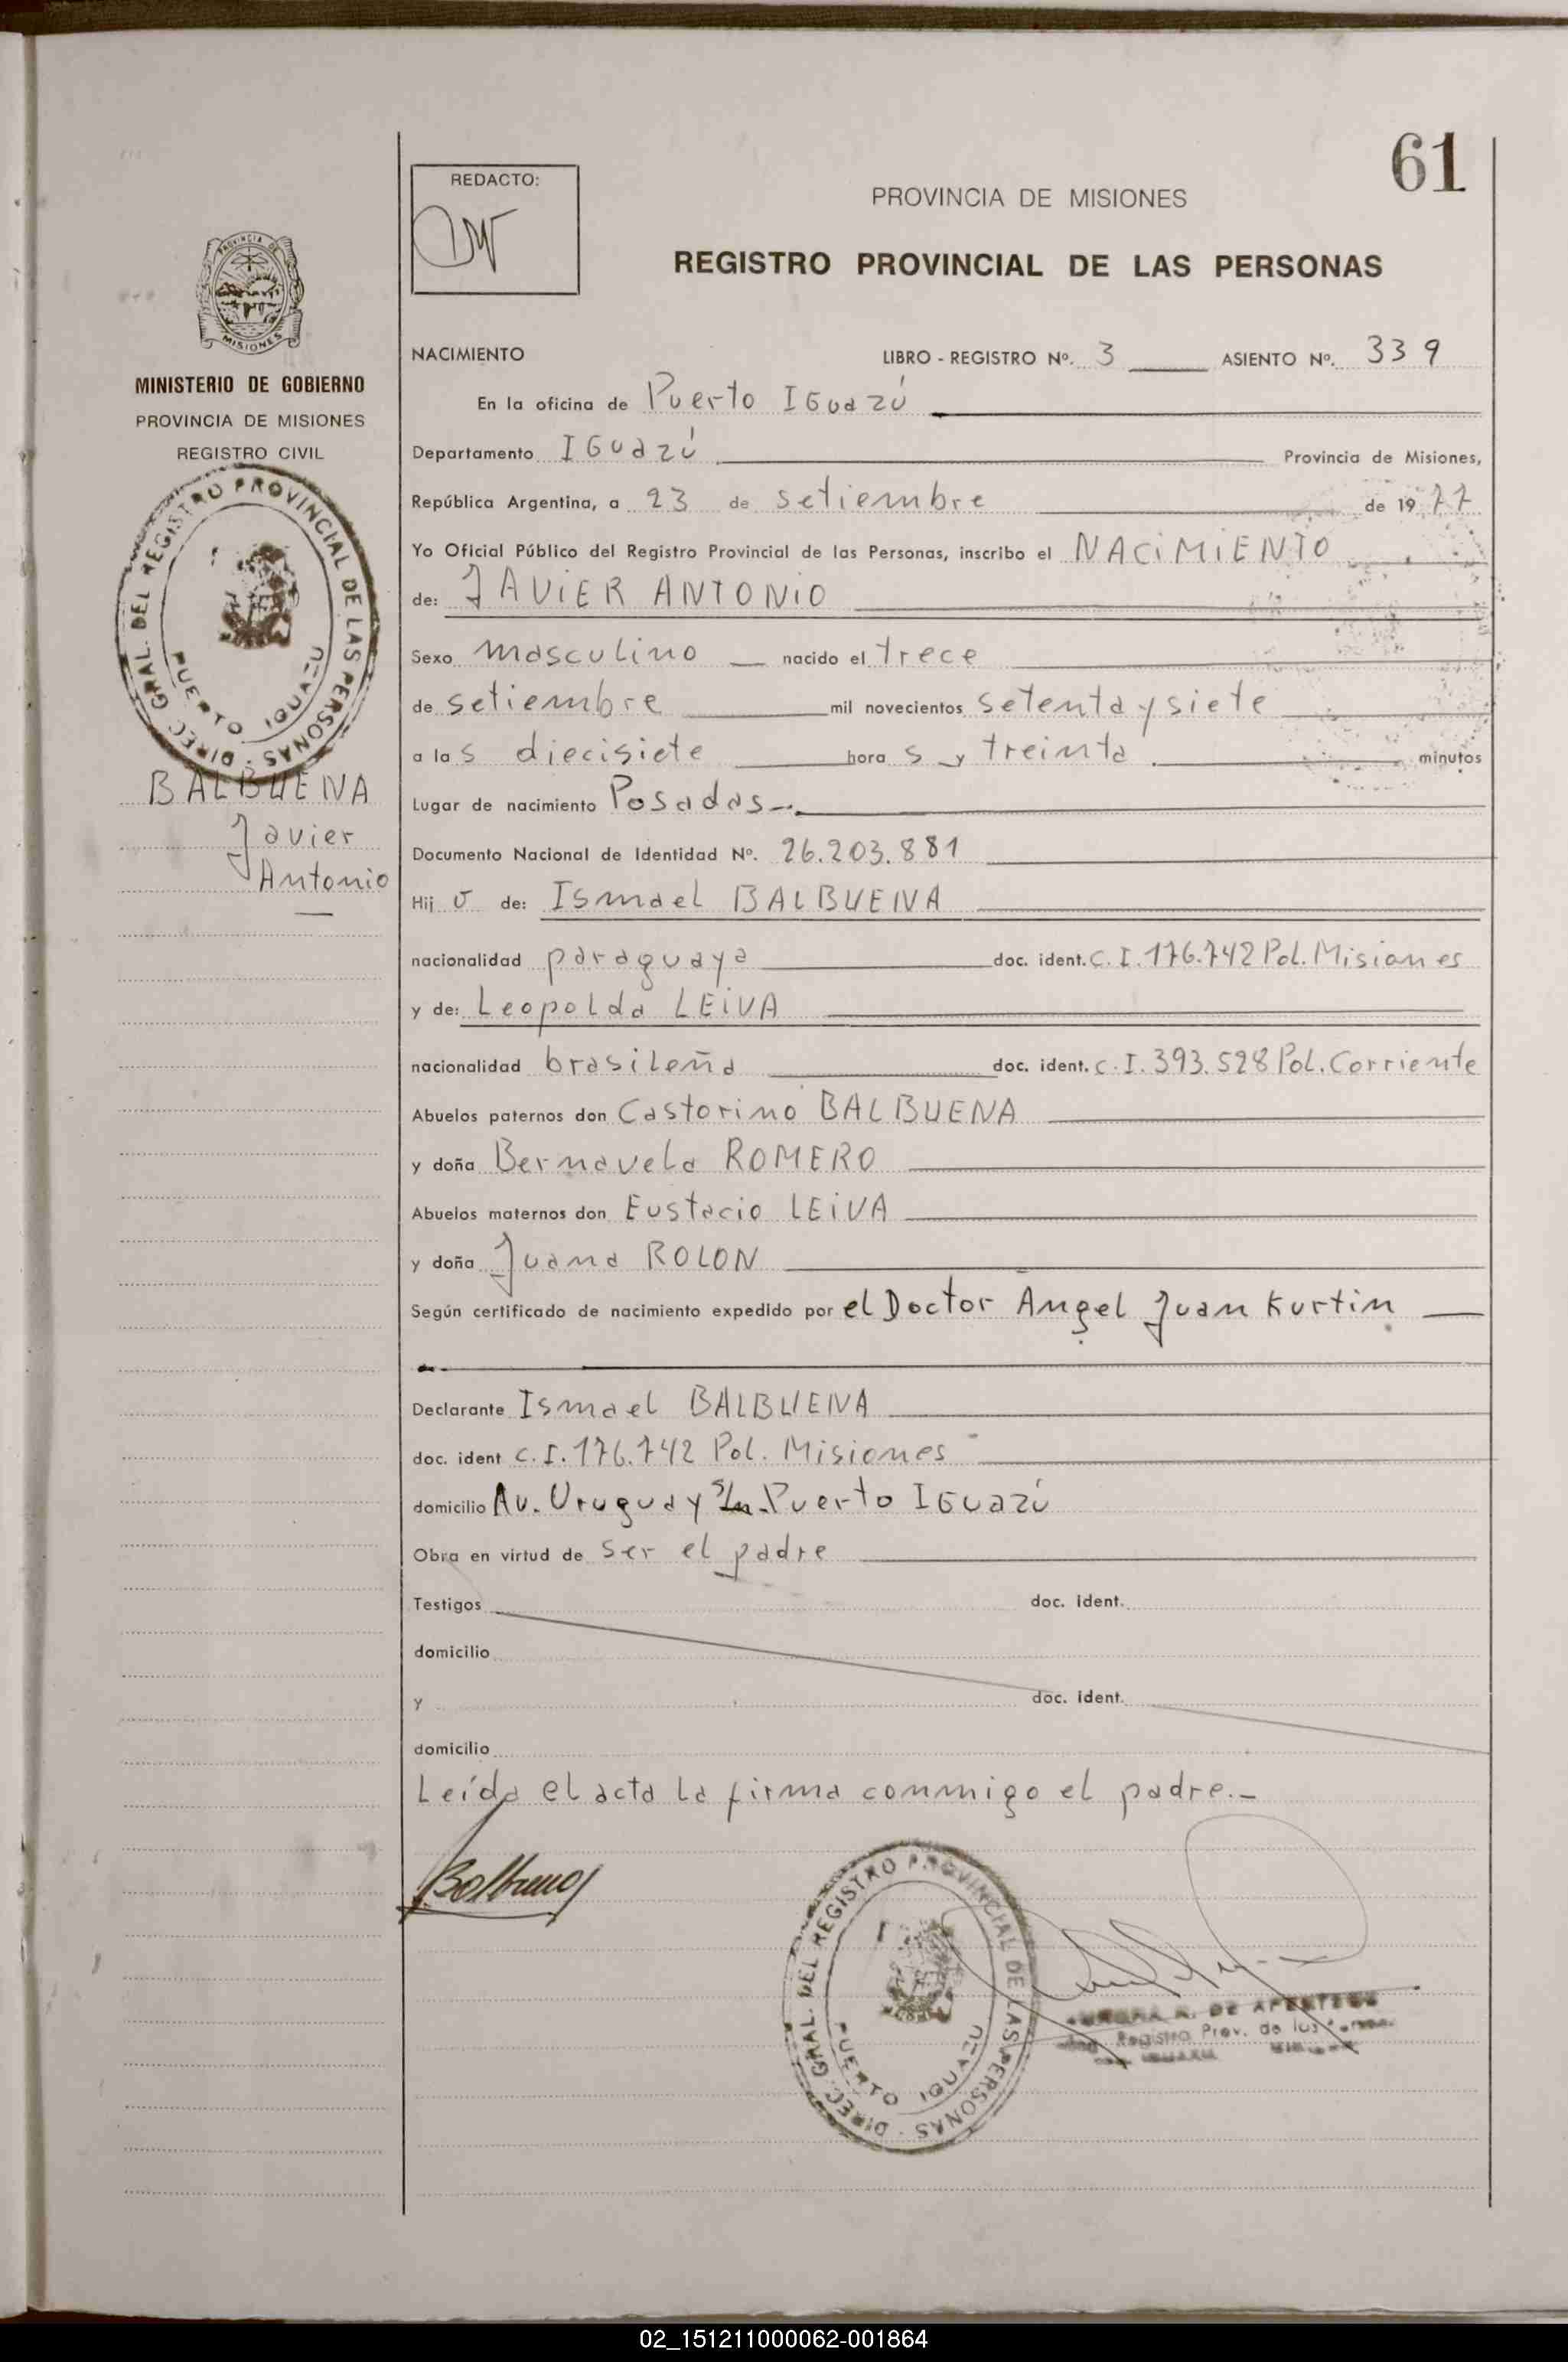 61
REDACTO:
PROVINCIA DE MISIONES
REGISTRO PROVINCIAL DE LAS PERSONAS
PROVINCIA DE
MISIONES
MINISTERIO DE GOBIERNO
PROVINCIA DE MISIONES
REGISTRO CIVIL
DIREC. GRAL. DEL REGISTRO PROVINCIAL DE LAS PERSONAS
PUERTO IGUAZU
BALBUENA
Javier
Antonio
NACIMIENTO LIBRO - REGISTRO Nº. 3 ASIENTO Nº. 339
En la oficina de Puerto IGuazú
Departamento IGuazú Provincia de Misiones,
República Argentina, a 23 de setiembre de 1977
Yo Oficial Público del Registro Provincial de las Personas, inscribo el NACiMiENTO
de: JAViER ANTONiO
Sexo masculino nacido el trece
de setiembre mil novecientos setenta y siete
a las diecisiete horas y treinta minutos
Lugar de nacimiento Posadas.-
Documento Nacional de Identidad Nº. 26.203.881
Hijo de: Ismael BALBUENA
nacionalidad paraguaya doc. ident. C.I. 176.742 Pol. Misiones
y de: Leopolda LEiVA
nacionalidad brasileña doc. ident. C.I. 393.528 Pol. Corriente
Abuelos paternos don Castorino BALBUENA
y doña Bernavela ROMERO
Abuelos maternos don Eustacio LEiVA
y doña Juana ROLON
Según certificado de nacimiento expedido por el Doctor Angel Juan Kurtin
Declarante Ismael BALBUENA
doc. ident C.I. 176.742 Pol. Misiones
domicilio Av. Uruguay s/n. Puerto IGuazú
Obra en virtud de ser el padre
Testigos doc. ident.
domicilio
y doc. ident.
domicilio
Leída el acta la firma conmigo el padre.-
DIREC. GRAL. DEL REGISTRO PROVINCIAL DE LAS PERSONAS
PUERTO IGUAZU
Registro Prov. de las
02_151211000062-001864